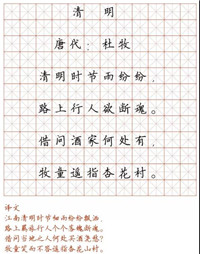 清明
唐代：杜牧
清明时节雨纷纷，
路上行人欲断魂。
借问酒家何处有，
牧童遥指杏花村。
译文
江南清明时节细雨纷纷飘洒，
路上羁旅行人个个落魄断魂。
借问当地之人何处买酒浇愁？
牧童笑而不答遥指杏花山村。